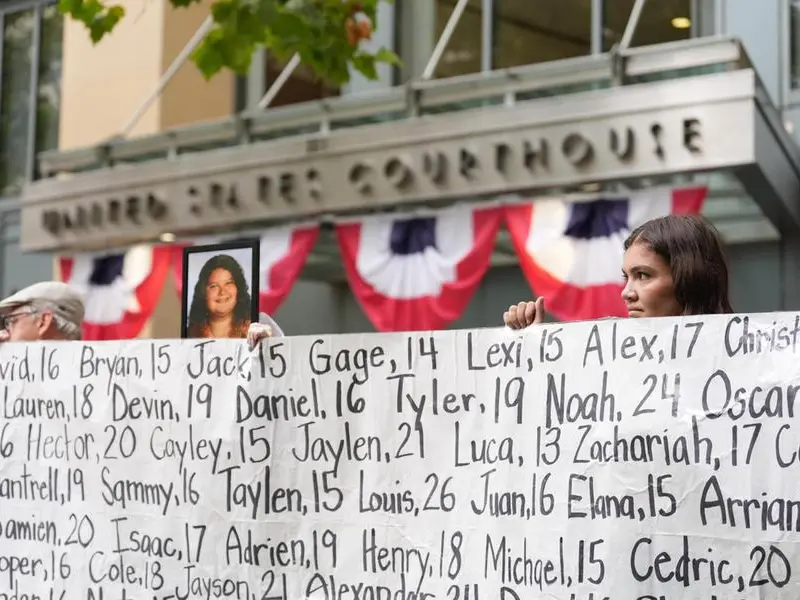 UNITED STATES COURTHOUSE
vid,16 Bryan,15 Jack,15 Gage,14 Lexi,15 Alex,17 Christ
Lauren,18 Devin,19 Daniel,16 Tyler,19 Noah,24 Oscar
6 Hector,20 Cayley,15 Jaylen,21 Luca,13 Zachariah,17 C
antrell,19 Sammy,16 Taylen,15 Louis,26 Juan,16 Elana,15 Arrian
amien,20 Isaac,17 Adrien,19 Henry,18 Michael,15 Cedric,20
oper,16 Cole,18 Jayson,21 Alexander,24